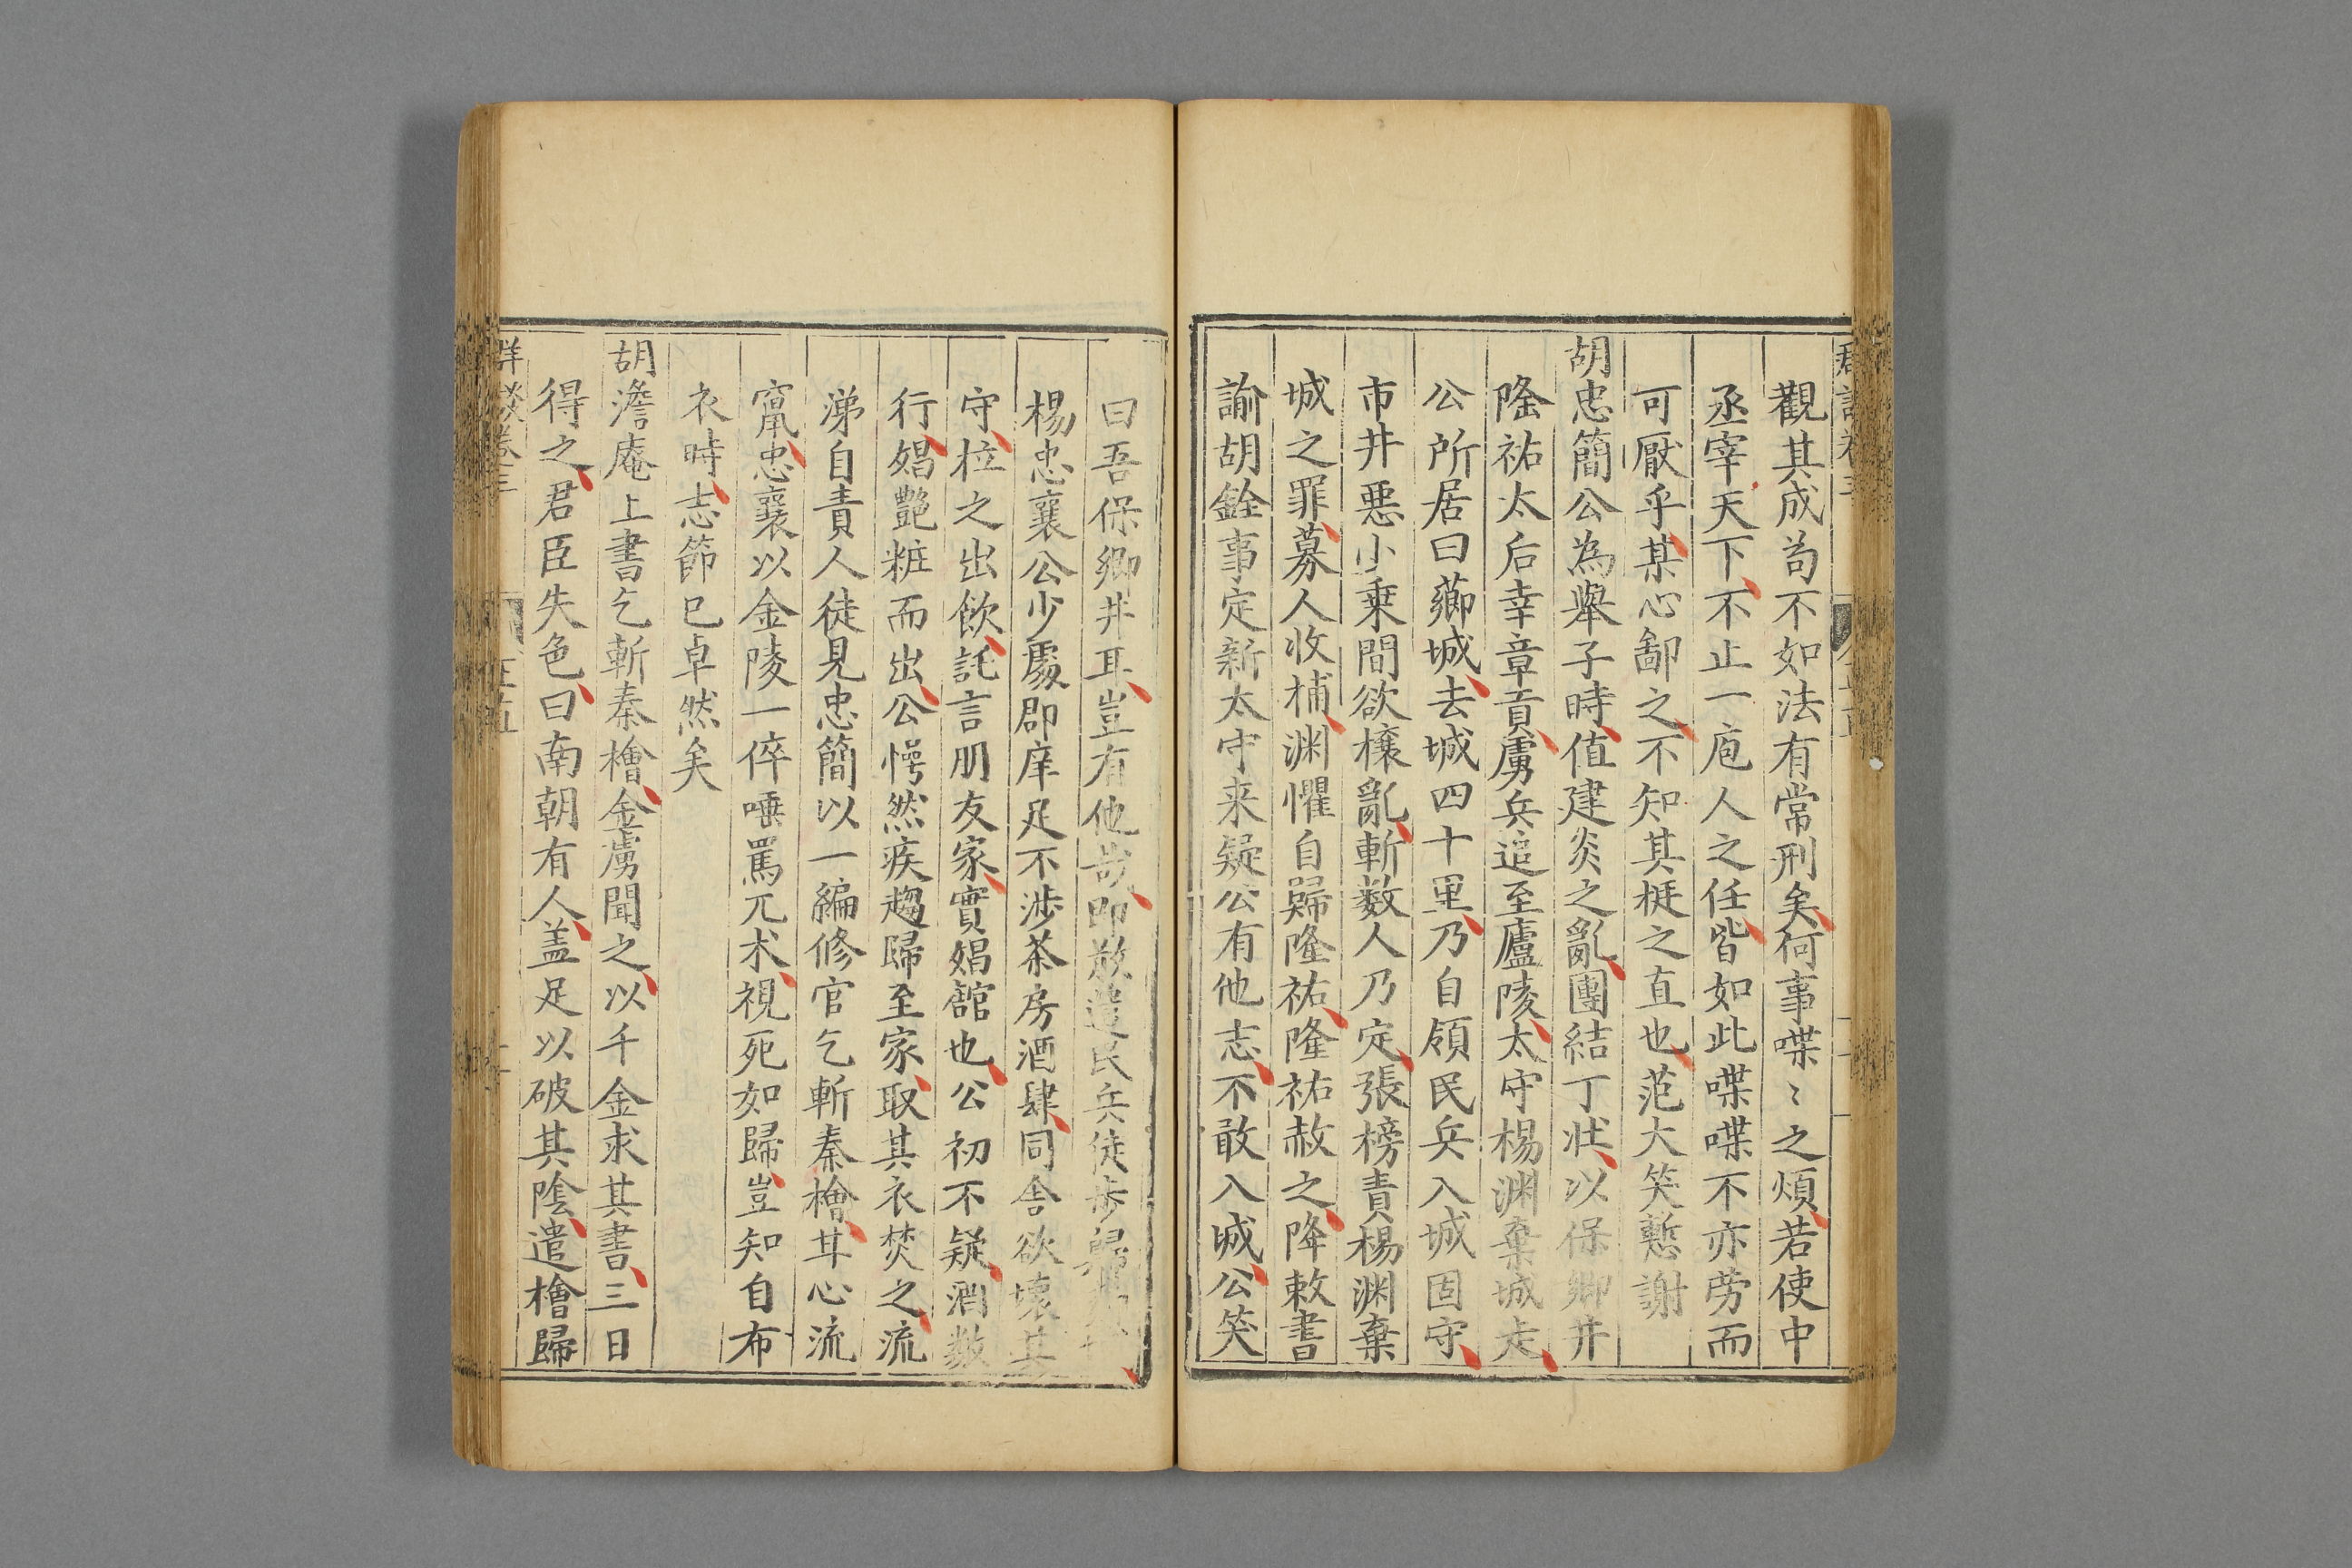 觀其成苟不如法有常刑矣何事喋〻之煩若使中
丞宰天下不止一庖人之任皆如此喋喋不亦勞而
可厭乎某心鄙之不知其梃之直也范大笑慙謝
胡忠簡公為舉子時值建炎之亂團結丁壯以保鄉井
隆祐太后幸章貢虜兵追至廬陵太守楊渊棄城走
公所居曰薌城去城四十里乃自領民兵入城固守
市井惡小乗間欲攘亂斬数人乃定張榜責楊渊棄
城之罪募人收捕渊懼自歸隆祐隆祐赦之降敕書
諭胡銓事定新太守来疑公有他志不敢入城公笑
曰吾保鄉井耳豈有他哉即散遣民兵徒步歸
楊忠襄公少處郡庠足不涉茶房酒肆同舍欲壞其
守拉之出飲託言朋友家實娼舘也公初不疑酒數
行娼艷粧而出公愕然疾趨歸至家取其衣焚之流
涕自責人徒見忠簡以一編修官乞斬秦檜甘心流
竄忠襄以金陵一倅唾罵兀术視死如歸豈知自布
衣時志節已卓然矣
胡澹庵上書乞斬秦檜金虜聞之以千金求其書三日
得之君臣失色曰南朝有人盖足以破其隂遣檜歸